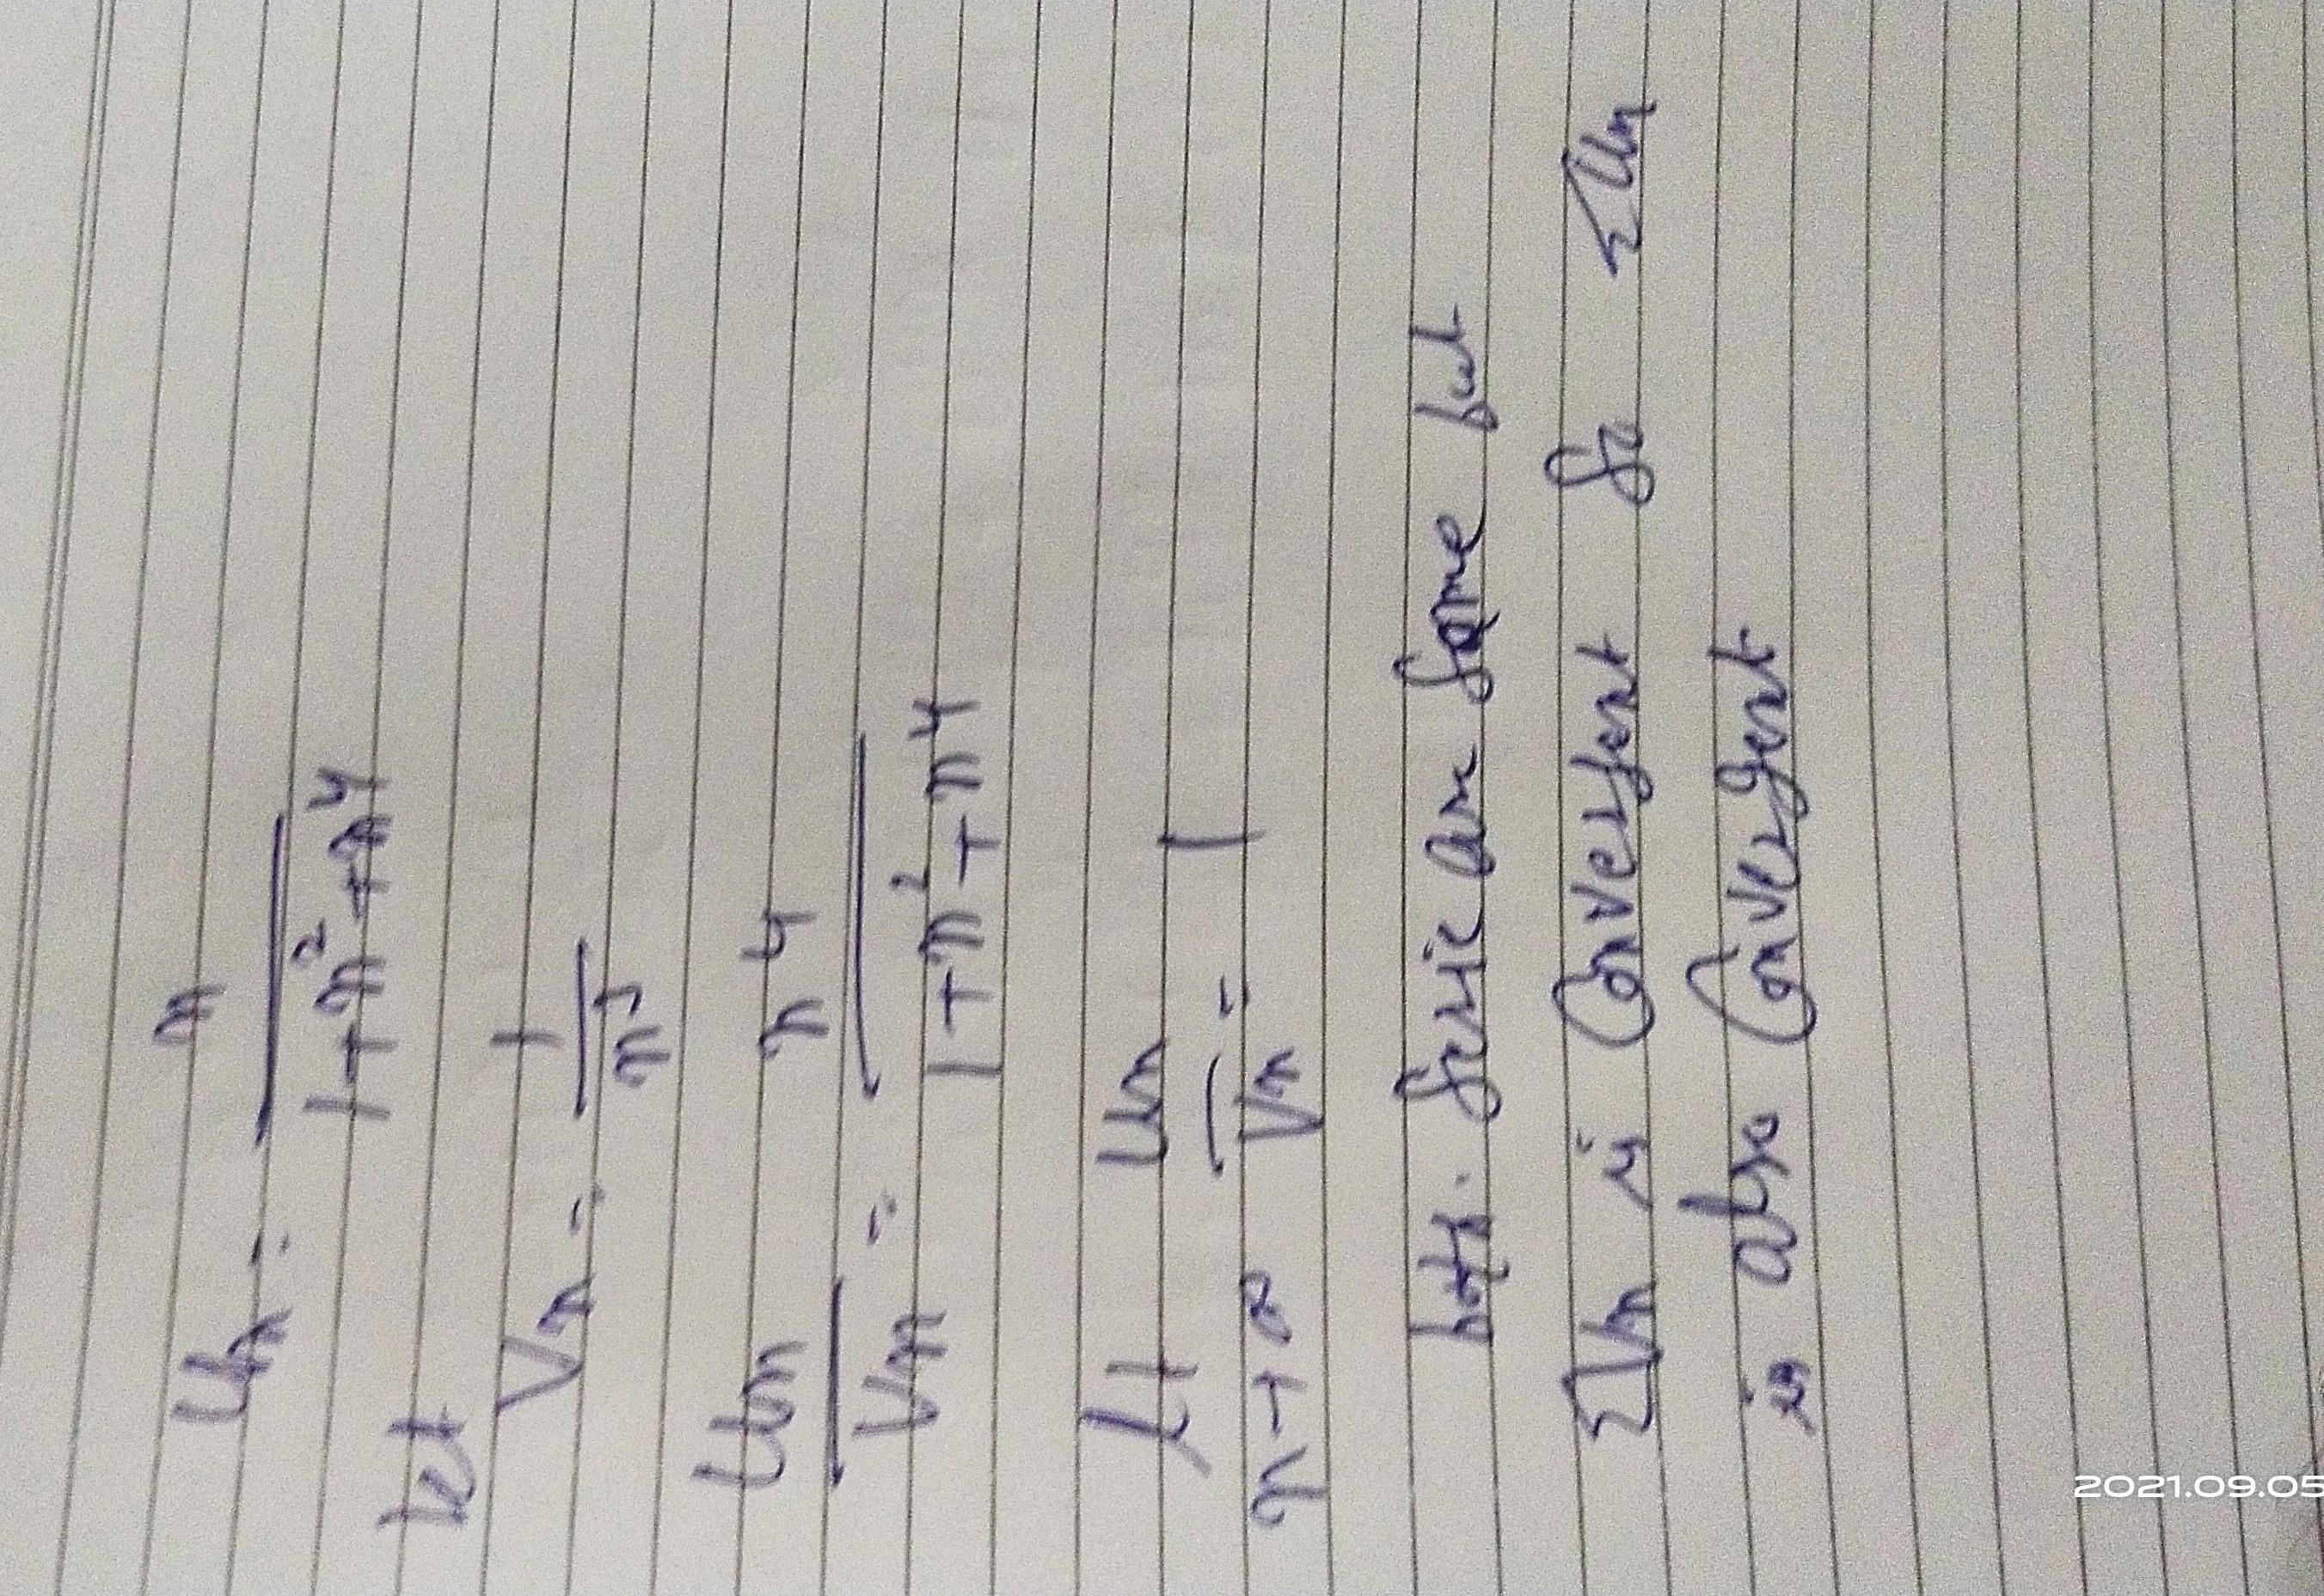 Un = n / 1+n²+n⁴
let
Vn = 1/n³
Un/Vn = n⁴ / 1+n²+n⁴
Lt n→∞ Un/Vn = 1
both. Seric are Same but
ΣVn is Convergent So ΣUn
is also Convergent
2021.09.05